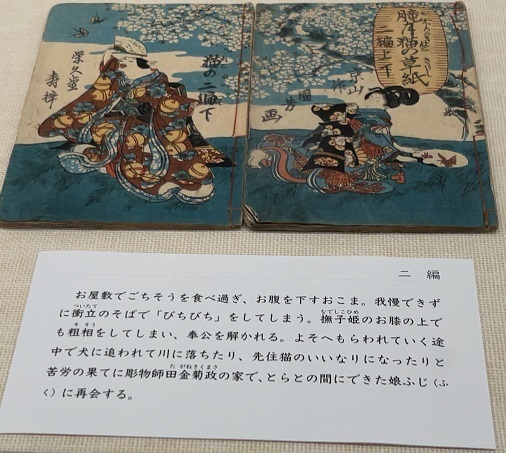 朧月猫の草紙
二編上下
京山作
國芳画
猫の二編下
栄久堂
寿梓
二 編
お屋敷でごちそうを食べ過ぎ、お腹を下すおこま。我慢できず
ついたて なでしこひめ
に衝立のそばで「びちびち」をしてしまう。撫子姫のお膝の上で
そそう
も粗相をしてしまい、奉公を解かれる。よそへもらわれていく途
中で犬に追われて川に落ちたり、先住猫のいいなりになったりと
たがねきくまさ
苦労の果てに彫物師田金菊政の家で、とらとの間にできた娘ふじ（ふ
く）に再会する。